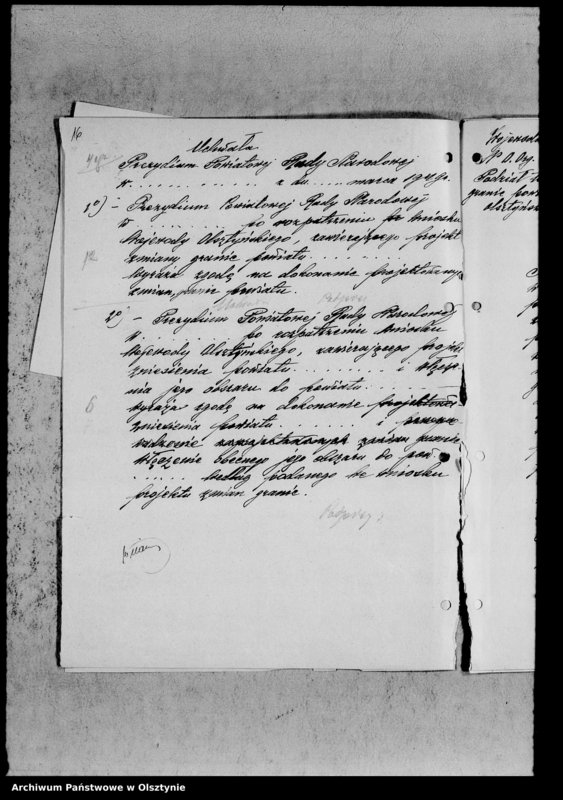 16
Uchwała
Prezydium Powiatowej Rady Narodowej
w . . . . . . . . . . z dn. . . . . marca 1949 r.
1°) – Prezydium Powiatowej Rady Narodowej
w . . . . . . . . po rozpatrzeniu wniosku
Wojewody Olsztyńskiego, zawierającego projekt
zmiany granic powiatu . . . . . .
wyraża zgodę na dokonanie projektowanych
zmian granic powiatu.
Podpisy
2°) – Prezydium Powiatowej Rady Narodowej
w . . . . . . . . po rozpatrzeniu wniosku
Wojewody Olsztyńskiego, zawierającego projekt
zniesienia powiatu . . . . . . . . i włącze-
nia jego obszaru do powiatu . . . . . .
6
wyraża zgodę na dokonanie projektowa-
zniesienia powiatu . . . . . . . . i
włączenie obecnego jego obszaru do pow.
. . . . . . według podanego we wniosku
projektu zmian granic.
Podpisy
Wojewoda
N° O. Org.
Podział
granic pow
olsztyńs
Archiwum Państwowe w Olsztynie